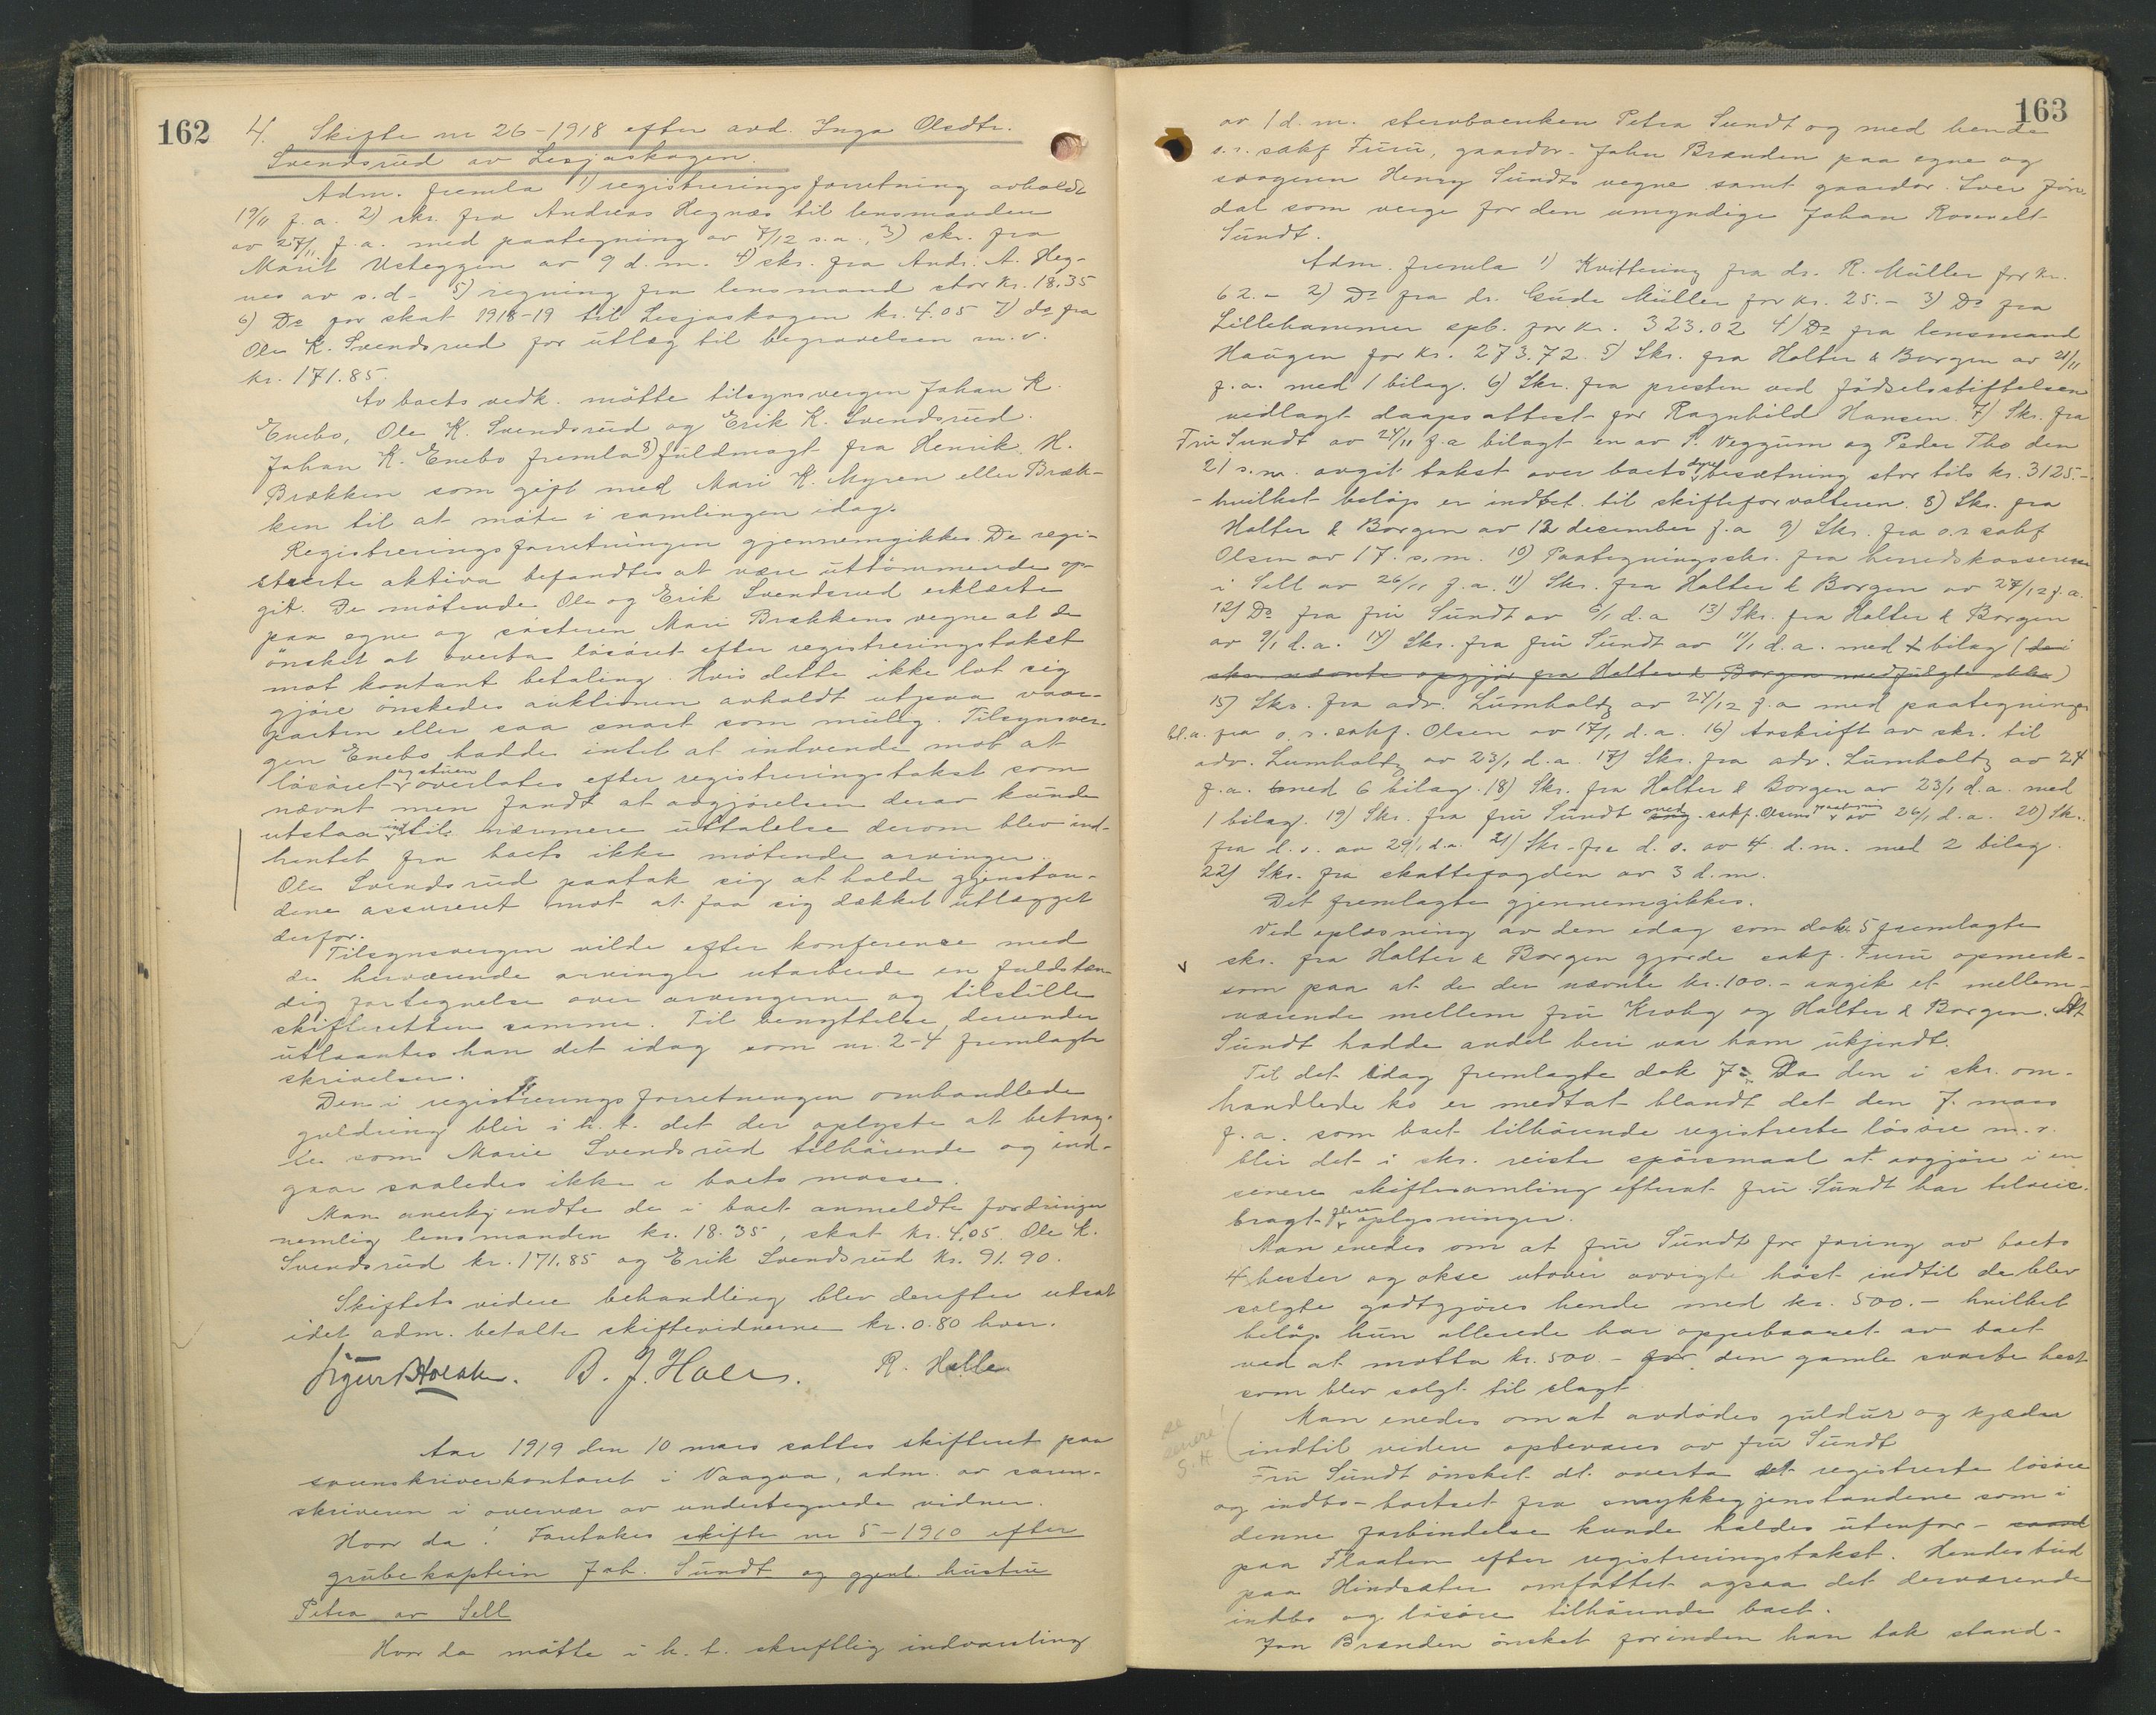 162
4. Skifte nr 26-1918 efter avd. Inga Olsdtr.
Svendsrud av Lesjaskogen.
Adm. fremla 1) registreringsforretning avholdt
19/11 f.a. 2) skr. fra Andreas Hegnæs til lensmanden
av 27/11 f.a. med paategning av 7/12 s.a., 3) skr. fra
Marit Usteggen av 9 d.m. 4) skr. fra Andr. A. Heg-
nes av s.d. 5) regning fra lensmand stor kr. 18.35
6) Do for skat 1918-19 til Lesjaskogen kr. 4.05 7) do fra
Ole K. Svendsrud for utlæg til begravelsen m.v.
kr. 171.85.
Av boets vedk. mötte tilsynsvergen Johan K.
Enebo, Ole K. Svendsrud og Erik K. Svendsrud.
Johan K. Enebo fremla 8) fuldmagt fra Henrik H.
Brækken som gift med Mari K. Myren eller Bræk-
ken til at möte i samlingen idag.
Registreringsforretningen gjennemgikkes. De regi-
strerte aktiva befandtes at være uttömmende op-
git. De mötende Ole og Erik Svendsrud erklærte
paa egne og søsteren Mari Brækkens vegne at de
önsket at overta lösöret efter registreringstakst
mot kontant betaling. Hvis dette ikke lot sig
gjöre önskedes auktionen avholdt utpaa vaar-
parten eller saa snart som mulig. Tilsynsver-
gen Enebo hadde intet at indvende mot at
lösöret og stuen overlates efter registreringstakst som
nævnt men fandt at avgjörelsen derav kunde
utstaa indtil nærmere uttalelse derom blev ind-
hentet fra boets ikke mötende arvinger.
Ole Svendsrud paatok sig at holde gjenstan-
dene assureret mot at faa sig dækket utlægget
derfor.
Tilsynsvergen vilde efter konference med
de herværende arvinger utarbeide en fuldstæn
dig fortegnelse over arvingerne og tilstille
skifteretten samme. Til benyttelse derunder
utlaantes han det idag som nr. 2-4 fremlagte
skrivelser.
Den i registreringsforretningen omhandlede
guldring blir i h.t. det der oplyste at betrag-
te som Marie Svendsrud tilhörende og ind-
gaar saaledes ikke i boets masse.
Man anerkjendte de i boet anmeldte fordringer
nemlig lensmanden kr. 18.35, skat kr. 4,05 Ole K.
Svendsrud kr. 171.85 og Erik Svendsrud kr. 91.90.
Skiftets videre behandling blev derefter utsat
idet adm. betalte skiftevidnerne kr. 0.80 hver.
Sigurd Holst. B. J. Holes. R. Halle
Aar 1919 den 10 mars sattes skifteret paa
sorenskriverkontoret i Vaagaa, adm. av soren-
skriveren i overvær av undertegnede vidner.
Hvor da! Foretokes skifte nr 5-1910 efter
grubekaptein Joh. Sundt og gjenl. hustru
Petra av Sell
Hvor da mötte i h.t. skriftlig indvarsling
163
av 1 d.m. stervboenken Petra Sundt og med hende
o.r. sakf Furu, gaardbr. John Brænden paa egne og
svogeren Henry Sundts vegne samt gaardbr. Iver Jön-
dal som verge for den umyndige Johan Rosevelt
Sundt.
Adm. fremla 1) Kvittering fra dr. R. Müller for kr.
62.- 2) Do fra dr. Gude Müller for kr. 25.- 3) Do fra
Lillehammer spb. for kr. 323.02 4) Do fra lensmand
Haugen for kr. 273.72. 5) Skr. fra Holter & Borgen av 21/11
f.a. med 1 bilag. 6) Skr. fra presten ved födselsstiftelsen
vedlagt daapsattest for Ragnhild Hansen. 7) Skr. fra
Fru Sundt av 24/11 f.a bilagt en av P. Veggum og Peder Tho den
21 s.m. avgit takst over boets dyrebesætning stor tils kr. 3125.-
- hvilket belöp er indbet. til skifteforvalteren. 8) Skr. fra
Holter & Borgen av 12 desember f.a 9) Skr. fra o.r sakf
Olsen av 17. s.m. 10) Paategningsskr. fra herredskassereren
i Sell av 26/11 f.a. 11) Skr. fra Holter & Borgen av 27/12 f.a.
12) Do fra fru Sundt av 6/1 d.a 13) Skr. fra Holter & Borgen
av 9/1 d.a. 14) Skr. fra fru Sundt av 11/1 d.a. med 1 bilag (det i
skr. nævnte opgjör fra Holter & Borgen medfulgte ikke)
15) Skr. fra adv. Lumholtz av 24/12 f.a med paategninger
bl.a. fra o.r. sakf. Olsen av 17/1 d.a. 16) Avskrift av skr. til
adv. Lumholtz av 23/1 d.a. 17) Skr. fra adv. Lumholtz av 24
f.a. med 6 bilag. 18) Skr. fra Holter & Borgen av 23/1 d.a. med
1 bilag. 19) Skr. fra fru Sundt med sakf. Olsens paategn av 26/1 d.a. 20) Skr.
fra d.s. av 29/1 d.a. 21) Skr. fra d.s. av 4 d.m. med 2 bilag.
22) Skr. fra skattefogden av 3 d.m.
Det fremlagte gjennemgikkes.
Ved oplæsning av den idag som dok. 5 fremlagte
skr. fra Holter & Borgen gjorde sakf. Furu opmerk-
som paa at de der nævnte kr. 100.- angik et mellem-
værende mellem fru Krohg og Holter & Borgen. At
Sundt hadde andel heri var ham ukjendt.
Til det idag fremlagte dok 7: Da den i skr. om-
handlede ko er medtat blandt det den 7. mars
f.a. som boet tilhörende registrerte lösöre m.v.
blir det i skr. reiste spörsmaal at avgjöre i en
senere skiftesamling efterat fru Sundt har tilveie-
bragt flere oplysninger.
Man enedes om at fru Sundt for foring av boets
4 hester og okse utover avvigte höst indtil de blev
solgte godtgjöres hende med kr. 500.- hvilket
belöp hun allerede har oppebaaret av boet
ved at motta kr. 500.- for den gamle svarte hest
som blev solgt til slagt.
se
senere!
S.H
Man enedes om at avdödes guldur og kjæde
indtil videre opbevares av fru Sundt
Fru Sundt önsket at overta det registrerte lösöre
og indbo - bortset fra smykkegjenstandene som i
denne forbindelse kunde holdes utenfor - saavel
paa Flaaten efter registreringstakst. Hendes bud
paa Hindsæter omfattet ogsaa det derværende
indbo og lösöre tilhörende boet.
Jon Brænden önsket forinden han tok stand-